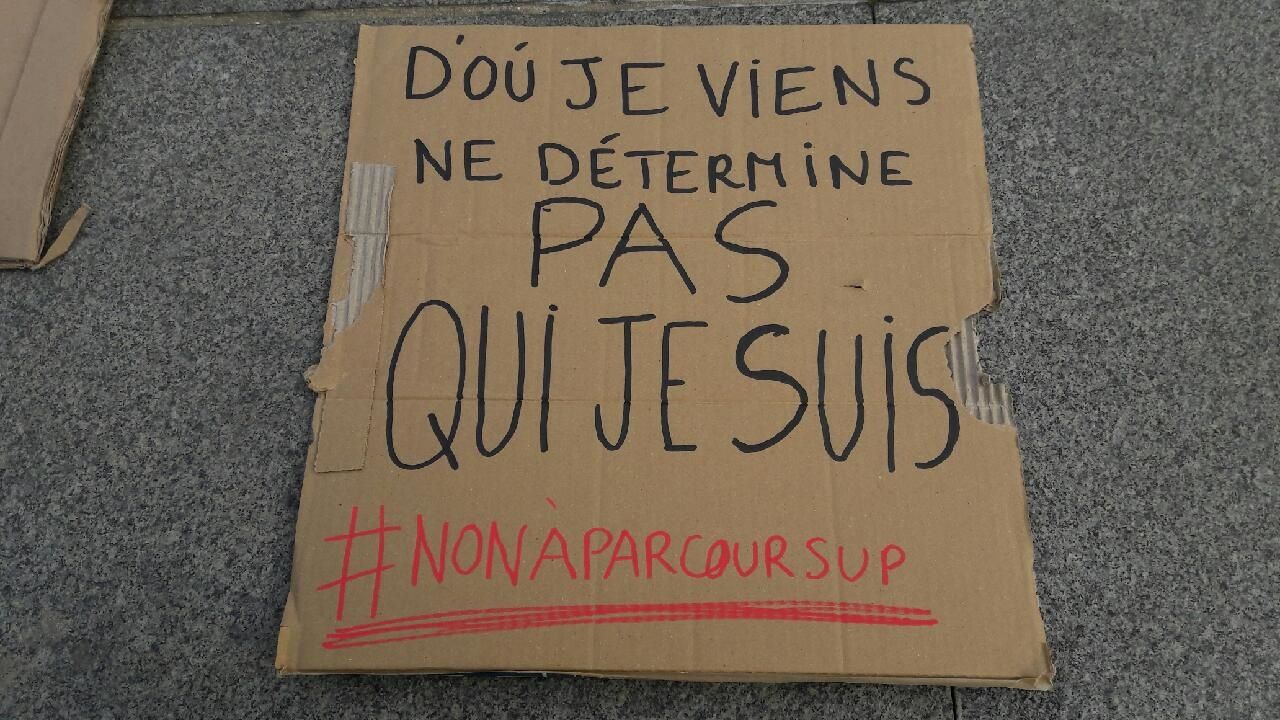 D'OÚ JE VIENS
NE DÉTERMINE
PAS
QUI JE SUIS
#NONÀPARCOURSUP